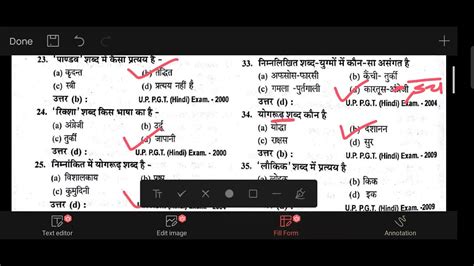 Done
23. 'पाण्डव' शब्द में कैसा प्रत्यय है -
(a) कृदन्त (b) तद्धित
(c) स्त्री (d) प्रत्यय नहीं है
उत्तर (b) : U.P. P.G.T. (Hindi) Exam. - 2000
24. 'रिक्शा' शब्द किस भाषा का है -
(a) अंग्रेजी (b) उर्दू
(c) तुर्की (d) जापानी
उत्तर (d) : U.P. P.G.T. (Hindi) Exam. - 2000
25. निम्नांकित में योगरूढ़ शब्द है -
(a) विशालकाय
(c) कुमुदिनी
उत्तर (d) :
33. निम्नलिखित शब्द-युग्मों में कौन-सा असंगत है
(a) अफसोस-फारसी (b) कैंची- तुर्की
(c) गमला -पुर्तगाली (d) कारतूस-अंग्रेजी
उत्तर (d) : U.P. P.G.T. (Hindi) Exam. - 2004
34. योगरूढ़ शब्द कौन है
(a) योद्धा (b) दशानन
(c) राक्षस (d) सुर
उत्तर (b) : U.P. P.G.T. (Hindi) Exam. -2009
35. 'लौकिक' शब्द में प्रत्यय है
(b) किक
(d) इक
U.P. P.G.T. (Hindi) Exam. -2009
Tr
Text editor
Edit image
Fill Form
Annotation